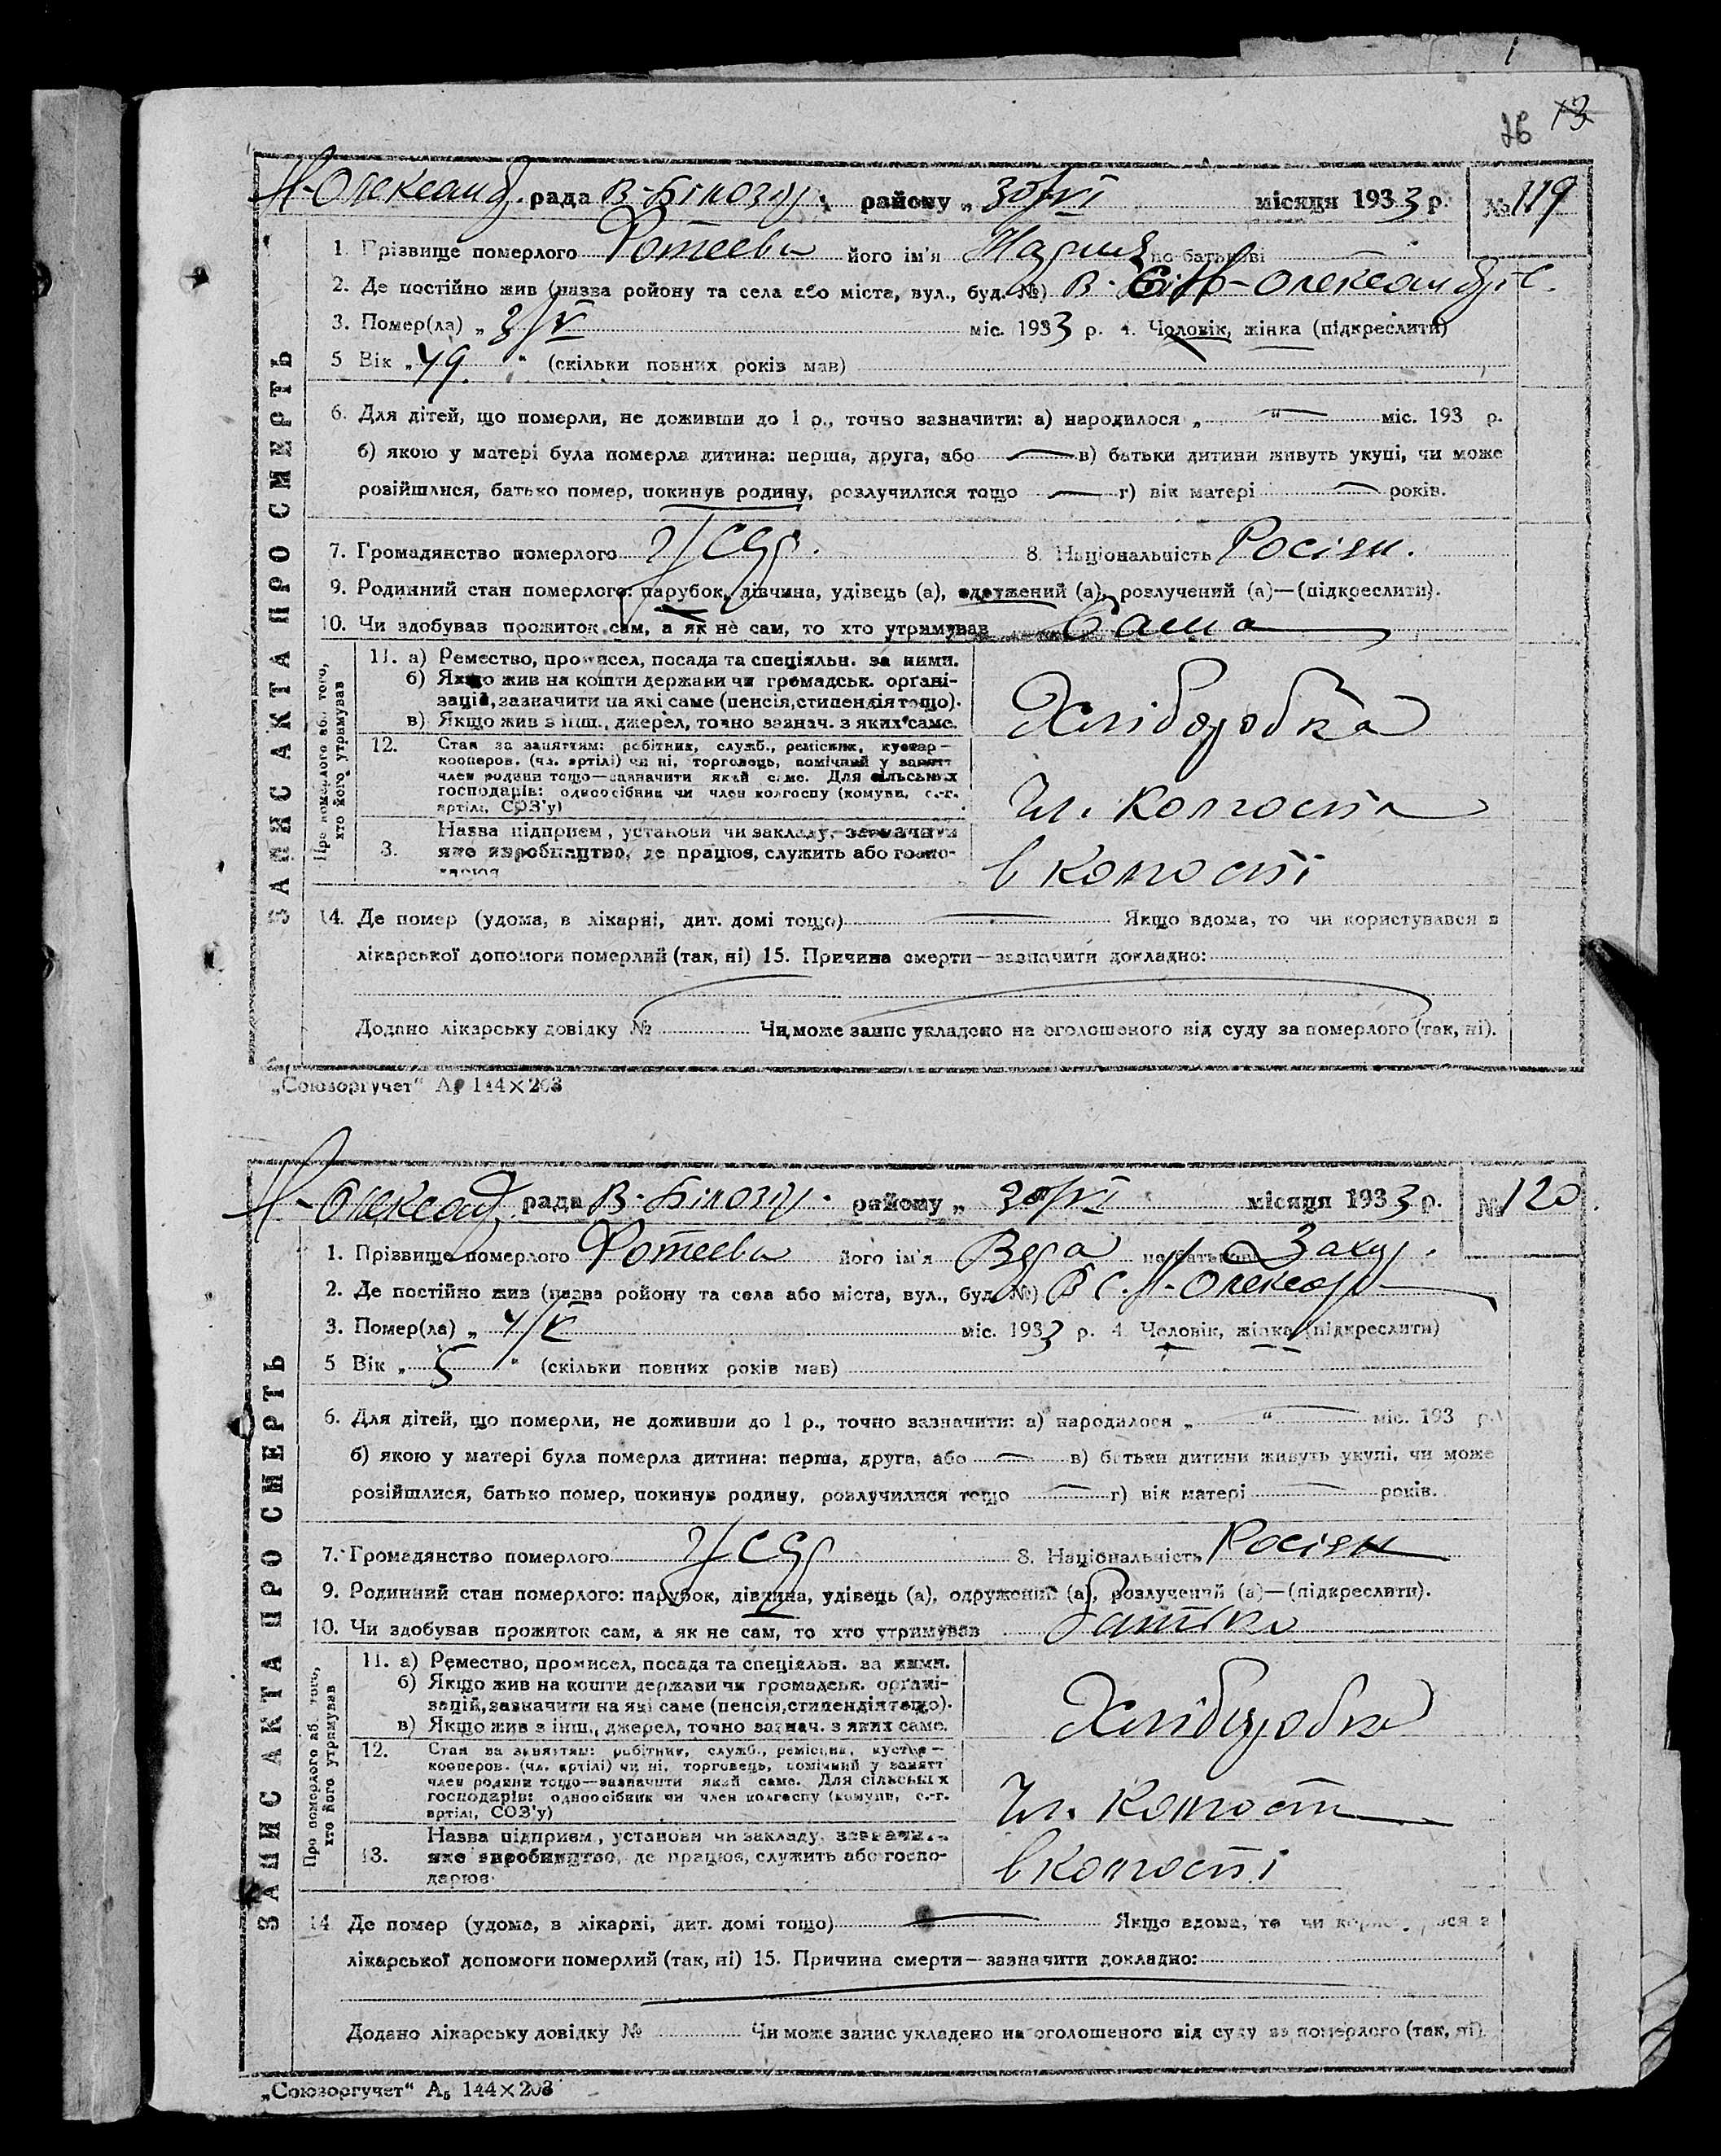 і
26 13
Н-Олександ. рада В-Білозір. району „ 30/VI місяця 1933 р. № 119
ЗАПИС АКТА ПРО СМЕРТЬ
1. Прізвище померлого Фотеева його ім'я Мария по батькові
2. Де постійно жив (назва ройону та села або міста, вул., буд. №) В-Біл Н-Олександр. С.
3. Помер(ла) „ 3/V міс. 1933 р. 4. Чоловік, жінка (підкреслити)
5 Вік „ 49 " (скільки повних років мав)
6. Для дітей, що померли, не доживши до 1 р., точно зазначити: а) народилося „ — " міс. 193 р.
б) якою у матері була померла дитина: перша, друга, або — в) батьки дитини живуть укупі, чи може
розійшлися, батько помер, покинув родину, розлучилися тощо — г) вік матері — років.
7. Громадянство померлого УСРР. 8. Національність Росіян.
9. Родинний стан померлого: парубок, дівчина, удівець (а), одружений (а), розлучений (а)—(підкреслити).
10. Чи здобував прожиток сам, а як не сам, то хто утримував Сама
Про померлого або того, хто його утримував
11. а) Ремество, промисел, посада та спеціяльн. за ними.
б) Якщо жив на кошти держави чи громадськ. органі-
зацій, зазначити на які саме (пенсія, стипендія тощо).
в) Якщо жив з інш., джерел, точно зазнач. з яких саме.
Хліборобка
12. Стан за заняттям: робітник, служб., ремісник, кустар—
кооперов. (чл. артілі) чи ні, торговець, помічний у занятт
член родини тощо—зазначити який саме. Для сільських
господарів: одноосібник чи член колгоспу (комуни, с.-г.
артілі, СОЗ'у)
Чл. колгоспа
3. Назва підприєм., установи чи закладу, зазначити
яке виробництво, де працює, служить або госпо-
дарює
в колгоспі
14. Де помер (удома, в лікарні, дит. домі тощо) — Якщо вдома, то чи користувався з
лікарської допомоги померлий (так, ні) 15. Причина смерти—зазначити докладно:
Додано лікарську довідку № Чи може запис укладено на оголошеного від суду за померлого (так, ні).
„Союзоргучет" А5 144×203
Н-Олександ. рада В-Білозір. району „ 30/VI місяця 1933 р. № 120.
ЗАПИС АКТА ПРО СМЕРТЬ
1. Прізвище померлого Фотеева його ім'я Вера по батькові Захар.
2. Де постійно жив (назва ройону та села або міста, вул., буд. №) В с. Н-Олександр
3. Помер(ла) „ 4/V міс. 1933 р. 4 Чоловік, жінка (підкреслити)
5 Вік „ 5 " (скільки повних років мав)
6. Для дітей, що померли, не доживши до 1 р., точно зазначити: а) народилося „ — " міс. 193 р.
б) якою у матері була померла дитина: перша, друга, або — в) батьки дитини живуть укупі, чи може
розійшлися, батько помер, покинув родину, розлучилися тощо — г) вік матері — років.
7. Громадянство померлого УСРР 8. Національність Росіян
9. Родинний стан померлого: парубок, дівчина, удівець (а), одружений (а), розлучений (а)—(підкреслити).
10. Чи здобував прожиток сам, а як не сам, то хто утримував Батько
Про померлого або того, хто його утримував
11. а) Ремество, промисел, посада та спеціяльн. за ними.
б) Якщо жив на кошти держави чи громадськ. органі-
зацій, зазначити на які саме (пенсія, стипендія тощо).
в) Якщо жив з інш., джерел, точно зазнач. з яких саме.
Хліборобка
12. Стан за заняттям: робітник, служб., ремісник, кустар—
кооперов. (чл. артілі) чи ні, торговець, помічний у занятт
член родини тощо—зазначити який саме. Для сільських
господарів: одноосібник чи член колгоспу (комуни, с.-г.
артілі, СОЗ'у)
Чл. колгосп
13. Назва підприєм., установи чи закладу, зазначить
яке виробництво, де працює, служить або госпо-
дарює.
в колгоспі
14 Де помер (удома, в лікарні, дит. домі тощо) — Якщо вдома, то чи користувався з
лікарської допомоги померлий (так, ні) 15. Причина смерти—зазначити докладно:
Додано лікарську довідку № Чи може запис укладено на оголошеного від суду за померлого (так, ні).
„Союзоргучет" А5 144×203